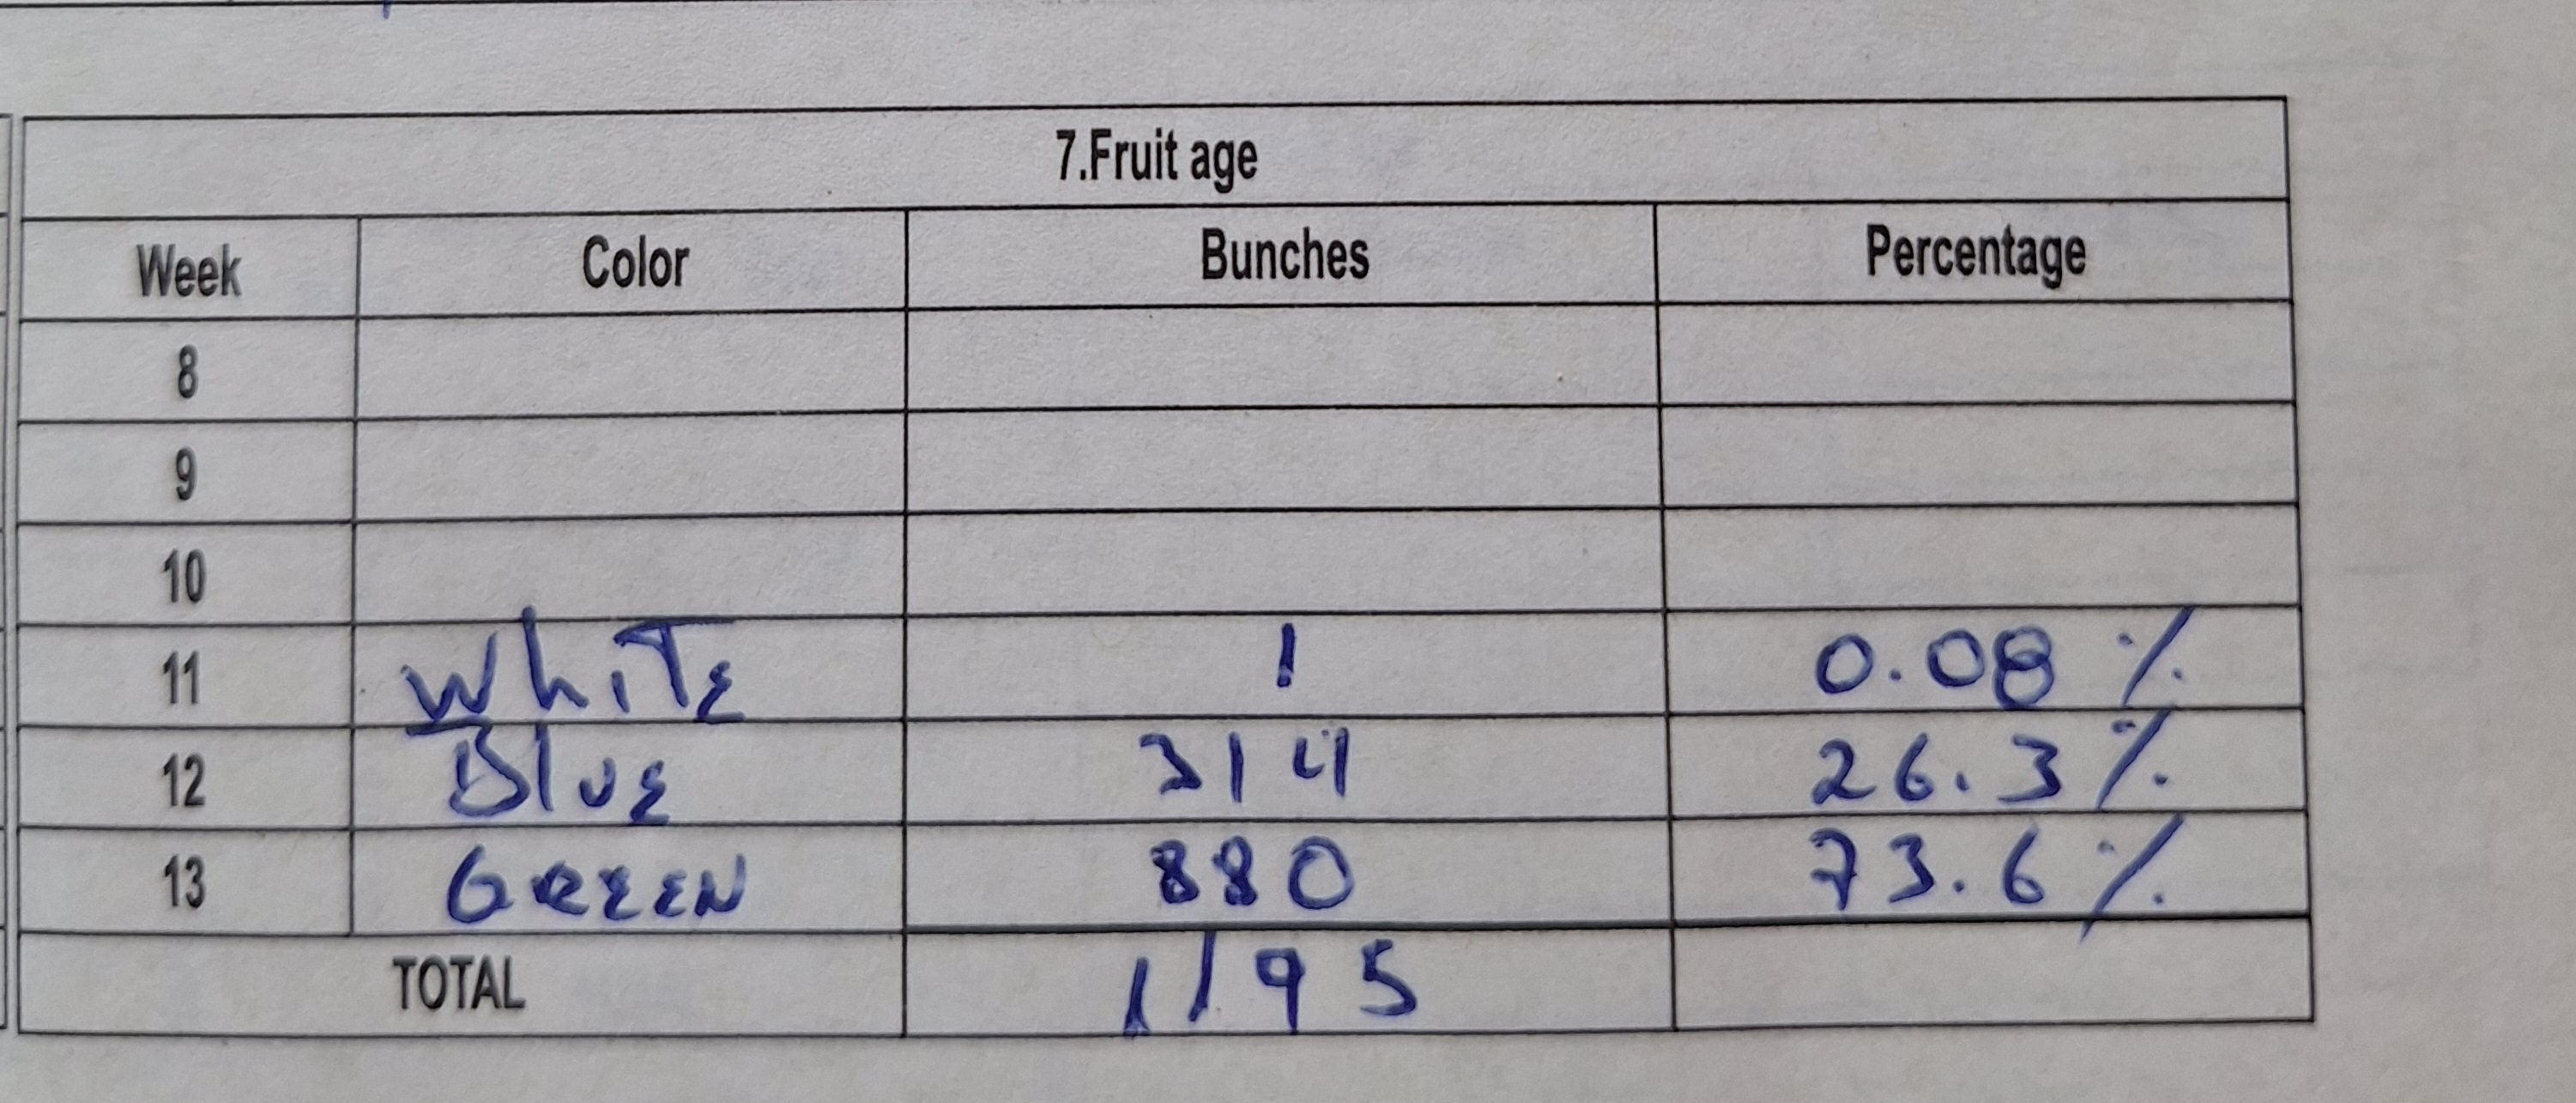 7.Fruit age
Week Color Bunches Percentage
8
9
10
11 WhiTE 1 0.08 %
12 BluE 314 26.3 %
13 GREEN 880 73.6 %
TOTAL 1195